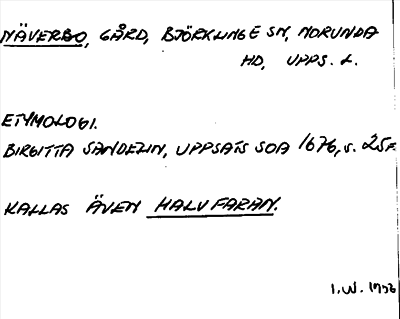 NÄVERBO, GÅRD, BJÖRKLINGE SN, NORUNDA
HD, UPPS. L.
ETYMOLOGI.
BIRGITTA SANDELIN, UPPSATS SOA 1676, s. 25 F.
KALLAS ÄVEN HALVFARAN.
I.W.